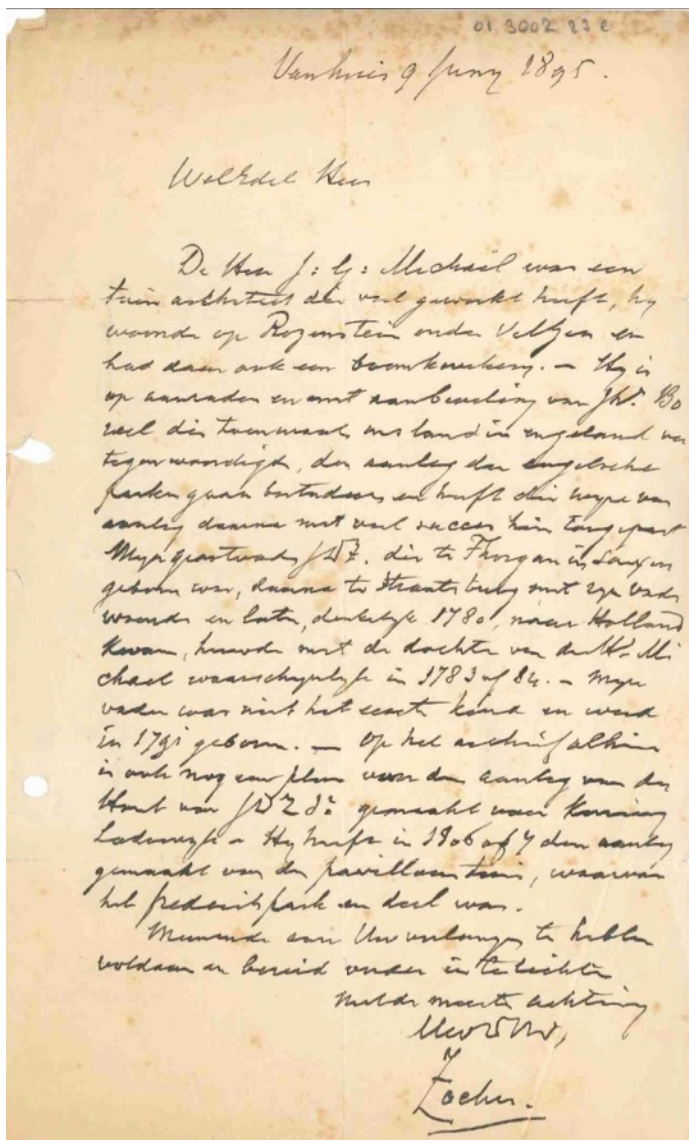 01 3002 23 e
Vanhuis 9 Juny 1895.
WelEdel Heer
De Heer J: G: Michaël was een
tuin architect die veel gewerkt heeft, hy
woonde op Rozenstein onder Velzen en
had daar ook een boomkweekery. — Hy is
op aanraden en met aanbeveling van Jhr. Bo
reel die toenmaals ons land in engeland ver
tegenwoordigde, den aanleg der engelsche
parken gaan bestudeeren en heeft die wyze van
aanleg daarna met veel succes hier toegepast
Myn grootvader JDZ. die te Thorgau in Saxen
geboren was, daarna te Straatsburg met zyn vader
woonde en later, denkelyk 1780, naar Holland
kwam, huwde met de dochter van den Hr. Mi
chael waarschynlyk in 1783 of 84. — Myn
vader was niet het eerste kind en werd
in 1791 geboren. — Op het archief alhier
is ook nog een plan voor den aanleg van den
Hout van JDZ Sr. gemaakt voor Koning
Lodewyk — Hy heeft in 1806 of 7 den aanleg
gemaakt van den pavilloentuin, waarvan
het frederikspark een deel was.
Meenende aan Uw verlangen te hebben
voldaan en bereid verder in te lichten
met de meeste achting
UwEdDw,
Zocher.